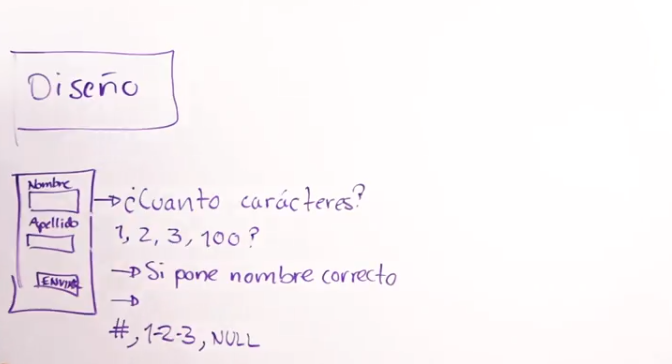 Diseño
Nombre
Apellido
ENVIAR
→ ¿Cuanto carácteres?
1, 2, 3, 100?
→ Si pone nombre correcto
→
#, 1-2-3, NULL